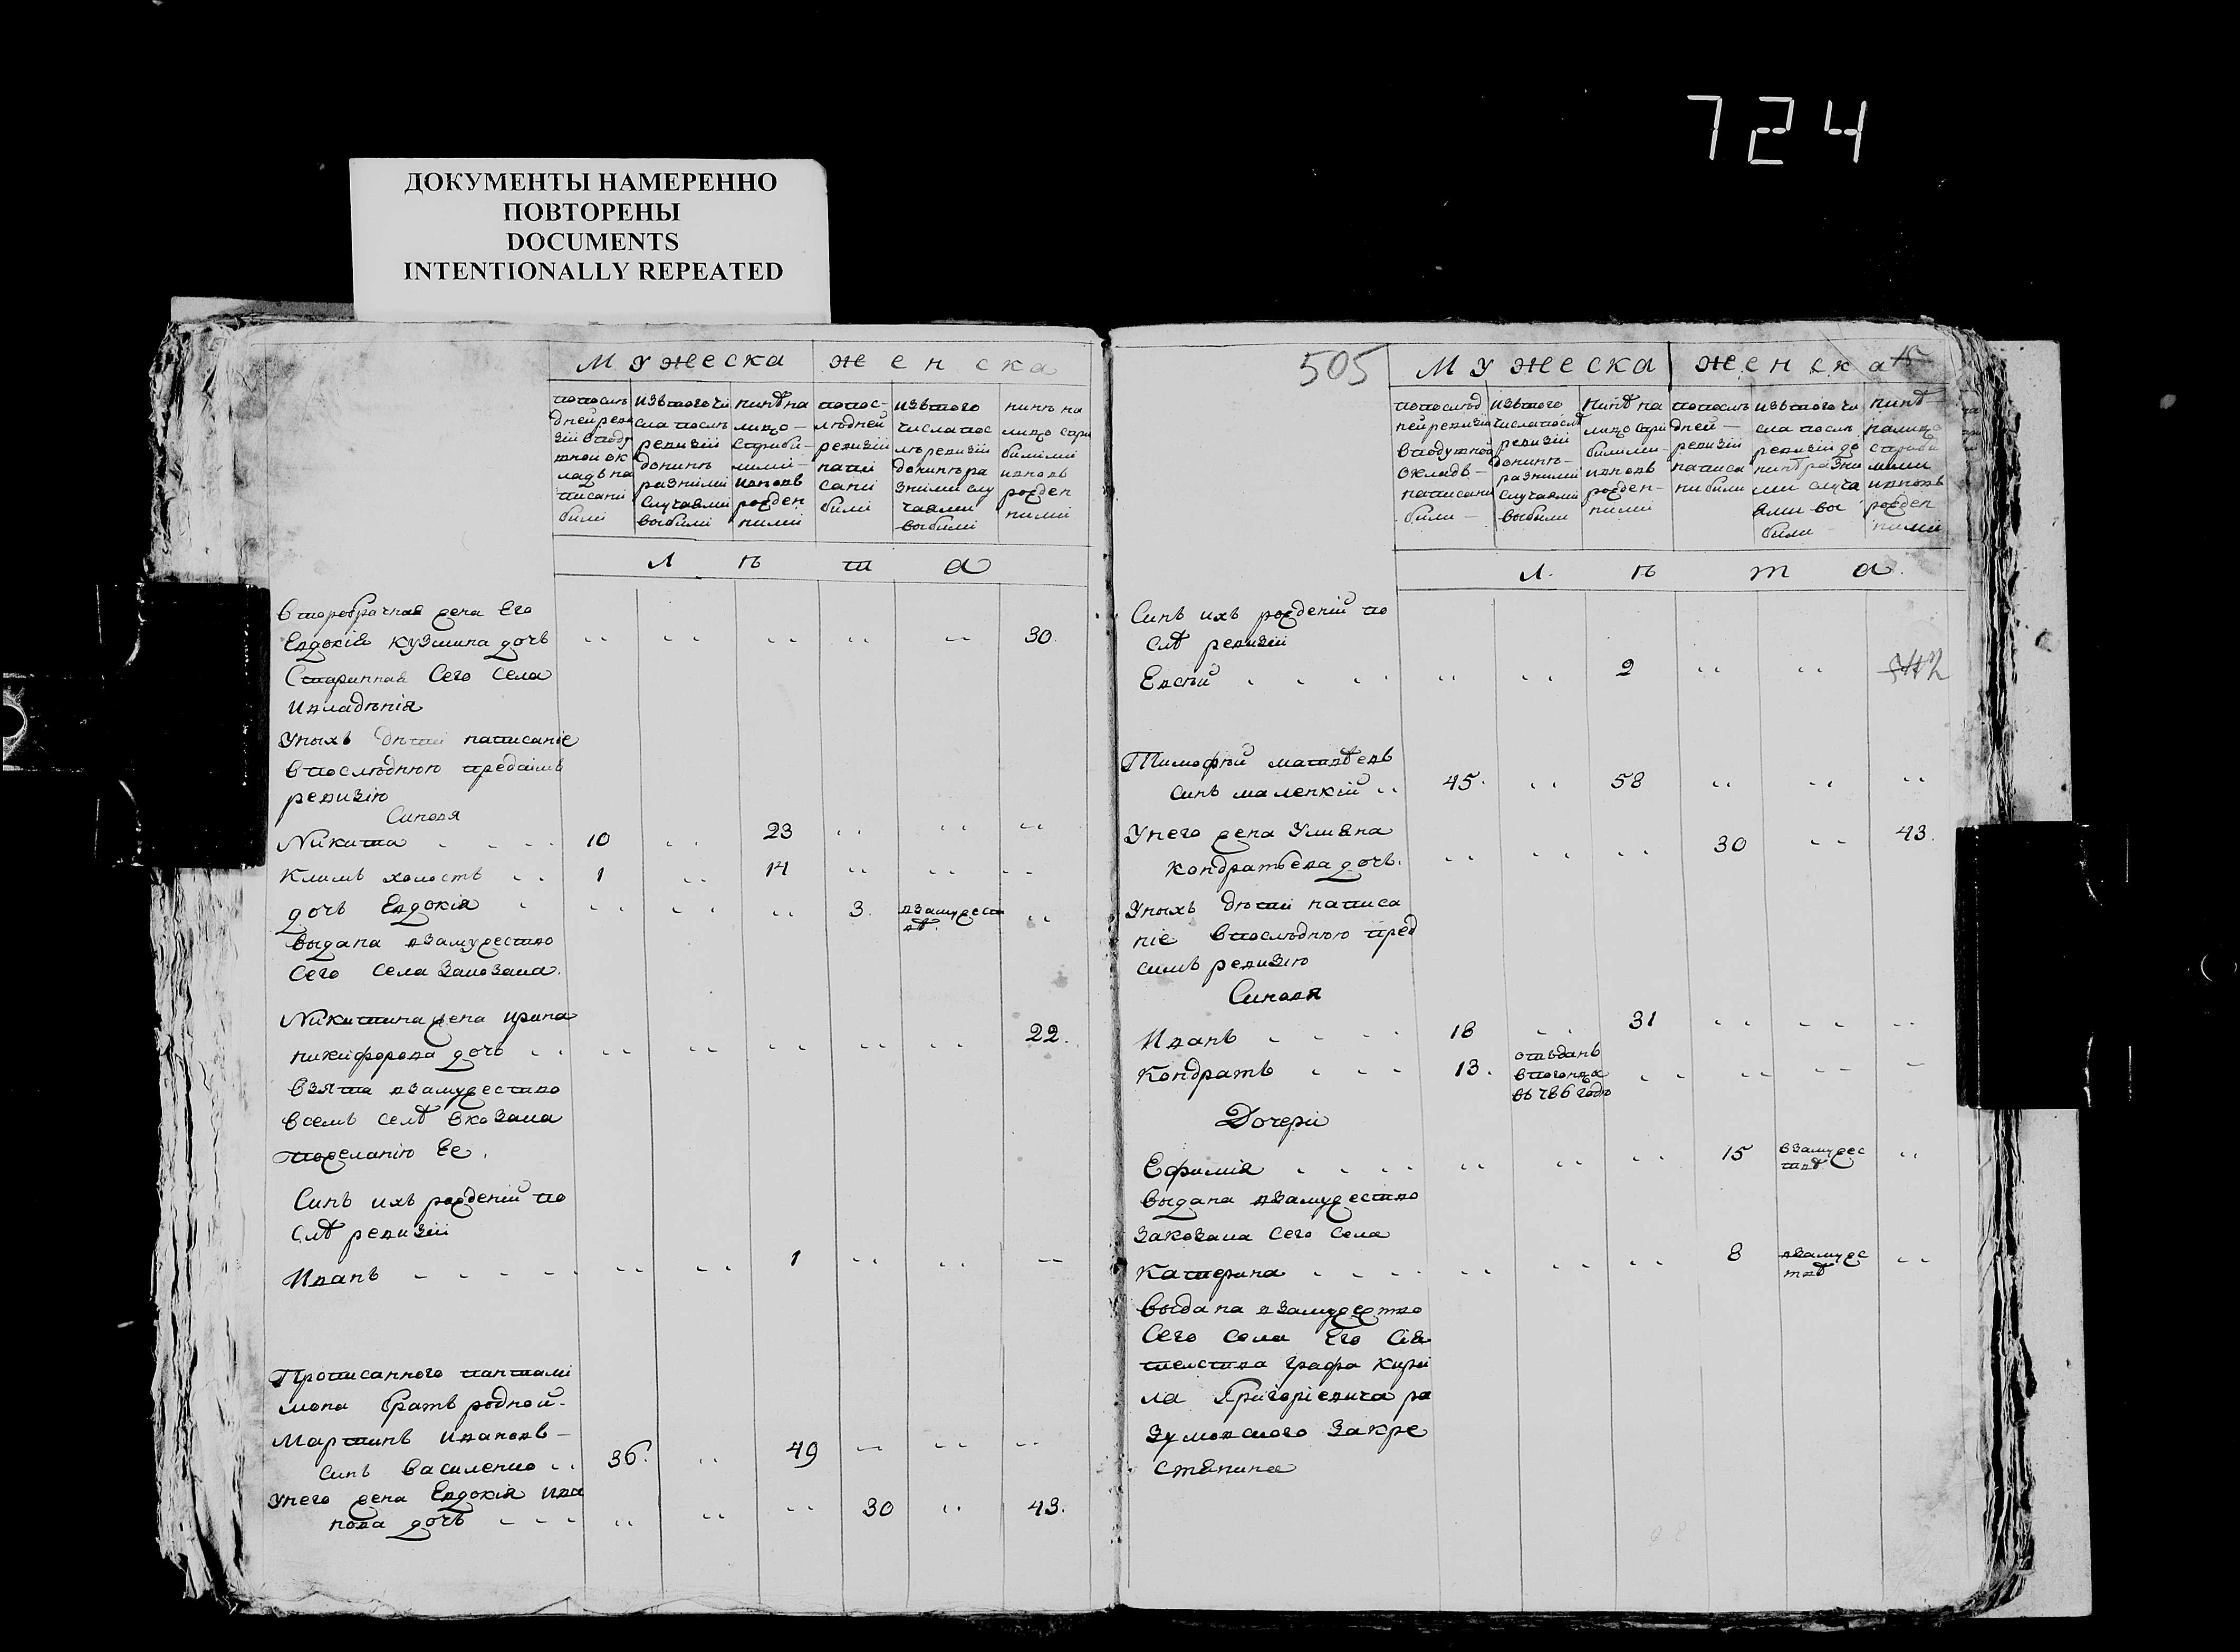 724
ДОКУМЕНТЫ НАМЕРЕННО
ПОВТОРЕНЫ
DOCUMENTS
INTENTIONALLY REPEATED
мужеска женска
попослѣ
дней реви
зіи вподу
шной ок
ладъ на
писани
были
изътого чи
сла послѣ
ревизіи
донинѣ
разними
случаями
выбили
нинѣ на
лицо
старими
иновь
рожден
ними
попос-
лѣдней
ревизіи
напи
сани
были
изътого
числа пос
лѣ ревизіи
донинѣ ра
зними слу
чаями
выбили
нинѣ на
лицо
ижновь
рожден
ними
лѣта
второбрачная жена Его
Евдокія кузмина дочь .. .. .. .. .. 30.
Старинная Сего Села
ивладѣнія
Унихъ дѣти написаніе
впослѣднюю предсимъ
ревизію
Синовя
Никита 10 .. 23 .. .. ..
Климъ холостъ 1 .. 14 .. .. ..
дочь Евдокія .. .. .. 3. взамужест
вѣ ..
выдана взамужество
Сего Села Закозака.
Никитина жена ирина
никифорова дочь .. .. .. .. .. 22.
взята взамужество
всемъ Селѣ
пожеланію Ее.
Синъ ихъ рожденій по
слѣ ревизіи
Иванъ .. .. 1 .. .. ..
Прописанного пантали
мона братъ родной
Мартинъ ивановъ
синъ василенко 36. .. 49 .. .. ..
Унего жена Евдокія ива
нова дочь .. .. .. 30 .. 43.
505 мужеска женска
попослѣд
ней ревизіи
вподушной
окладъ
написани
были
изътого
числа послѣ
ревизіи
донинѣ
разними
случаями
выбили
нинѣ на
лицо
билими
ивновь
рожден-
ними
попослѣ
дней
ревизіи
написа
ни били
изътого чи
сла послѣ
ревизіи до
нинѣ разни
ми случа
ями вы
били
нинѣ
налицо
ивновь
рожден
ними
лѣта
Синъ ихъ рожденій по
слѣ ревизіи
Евсѣй .. .. 2 .. ..
Тимофѣй матвѣевъ
синъ маленкій 45. .. 58 .. .. ..
Унего жена Уляна
кондратьева дочь. .. .. .. 30 .. 43.
Унихъ дѣти написа
ніе впослѣднюю пред
симъ ревизію
Синовя
Иванъ 18 .. 31 .. .. ..
Кондратъ 13. отъданъ
въ 786 году .. .. .. ..
Дочери
Ефимія .. .. .. 15 взамужес
твѣ ..
выдана взамужество
Закозака Сего Села
Катерина .. .. .. 8 взамужес
твѣ ..
выдана взамужество
Сего Села Его Сія
телства графа кири
ла Григоріевича ра
зумовского Закре
стянина